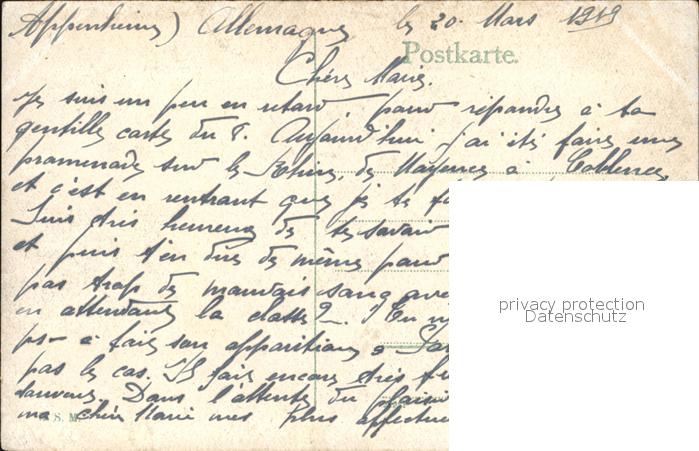 Appenheim) Allemagne le 20 Mars 1919
Postkarte.
Chère Marie.
Je suis un peu en retard pour répondre à ta
gentille carte du 8. Aujourd'hui j'ai été faire une
promenade sur le Rhin, de Mayence à Coblence
et c'est en rentrant que je te
Suis très heureux de te savoir
et puis t'en dire de même pour
pas trop de mauvais sang
en attendant la classe? 
a faire son apparition
pas le cas. Il fait encore très
Dans l'attente du plaisir
ma chère Marie mes plus
S. M.
privacy protection
Datenschutz